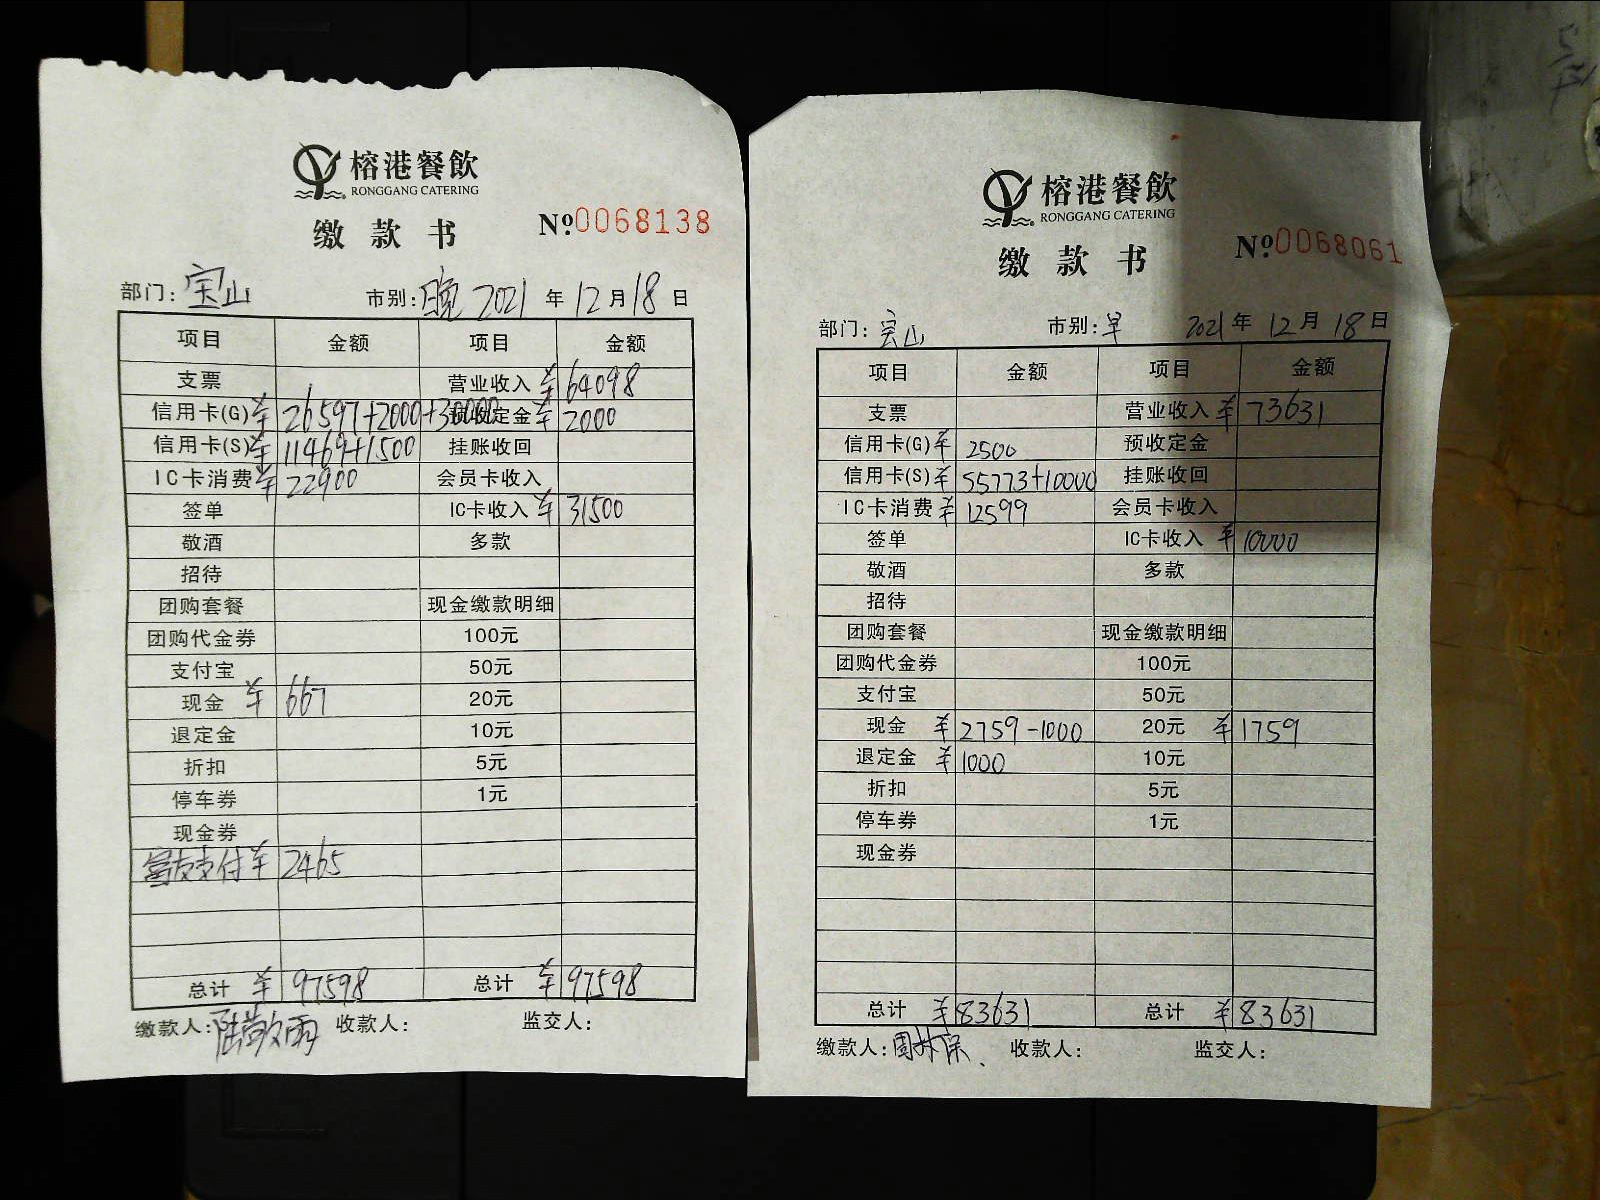 榕港餐飲
RONGGANG CATERING
缴款书 №0068138
部门:宝山 市别:晚 2021年12月18日
项目 金额 项目 金额
支票 营业收入 ¥64098
信用卡(G) ¥26597+2000+30000 预收定金 ¥2000
信用卡(S) ¥11469+1500 挂账收回
IC卡消费 ¥22900 会员卡收入
签单 IC卡收入 ¥31500
敬酒 多款
招待
团购套餐 现金缴款明细
团购代金券 100元
支付宝 50元
现金 ¥667 20元
退定金 10元
折扣 5元
停车券 1元
现金券
富友支付 ¥2465
总计 ¥97598 总计 ¥97598
缴款人:陆敬雨 收款人: 监交人:
榕港餐飲
RONGGANG CATERING
缴款书 №0068061
部门:宝山 市别:早 2021年12月18日
项目 金额 项目 金额
支票 营业收入 ¥73631
信用卡(G) ¥2500 预收定金
信用卡(S) ¥55773+10000 挂账收回
IC卡消费 ¥12599 会员卡收入
签单 IC卡收入 ¥10000
敬酒 多款
招待
团购套餐 现金缴款明细
团购代金券 100元
支付宝 50元
现金 ¥2759-1000 20元 ¥1759
退定金 ¥1000 10元
折扣 5元
停车券 1元
现金券
总计 ¥83631 总计 ¥83631
缴款人: 收款人: 监交人: